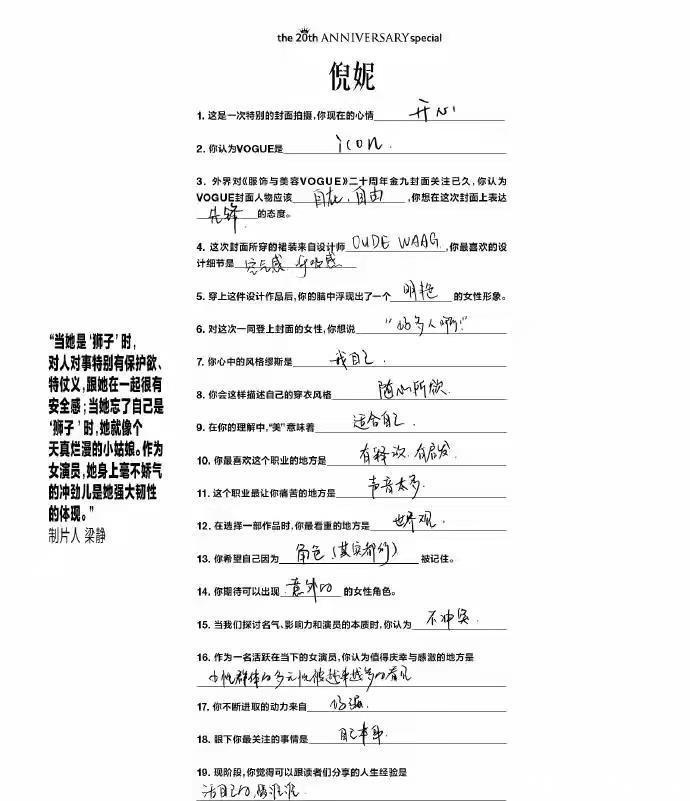 the 20th ANNIVERSARY special
倪妮
1. 这是一次特别的封面拍摄,你现在的心情 开心
2. 你认为VOGUE是 icon.
3. 外界对《服饰与美容VOGUE》二十周年金九封面关注已久,你认为
VOGUE封面人物应该 自在、自由 ,你想在这次封面上表达
先锋 的态度。
4. 这次封面所穿的裙装来自设计师 OUDE WAAG ,你最喜欢的设
计细节是 空气感 呼吸感
5. 穿上这件设计作品后,你的脑中浮现出了一个 明艳 的女性形象。
6. 对这次一同登上封面的女性,你想说 “好多人啊!”
7. 你心中的风格缪斯是 我自己.
8. 你会这样描述自己的穿衣风格 随心所欲.
9. 在你的理解中,“美”意味着 适合自己.
10. 你最喜欢这个职业的地方是 有释放.有启发.
11. 这个职业最让你痛苦的地方是 声音太多.
12. 在选择一部作品时,你最看重的地方是 世界观.
13. 你希望自己因为 角色(其实都行) 被记住。
14. 你期待可以出现 意外的 的女性角色。
15. 当我们探讨名气、影响力和演员的本质时,你认为 不冲突.
16. 作为一名活跃在当下的女演员,你认为值得庆幸与感激的地方是
女性群体的多元性被越来越多的看见
17. 你不断进取的动力来自 好强.
18. 眼下你最关注的事情是 自己本身.
19. 现阶段,你觉得可以跟读者们分享的人生经验是
活自己的,爱谁谁.
“当她是‘狮子’时,
对人对事特别有保护欲、
特仗义,跟她在一起很有
安全感;当她忘了自己是
‘狮子’时,她就像个
天真烂漫的小姑娘。作为
女演员,她身上毫不娇气
的冲劲儿是她强大韧性
的体现。”
制片人 梁静